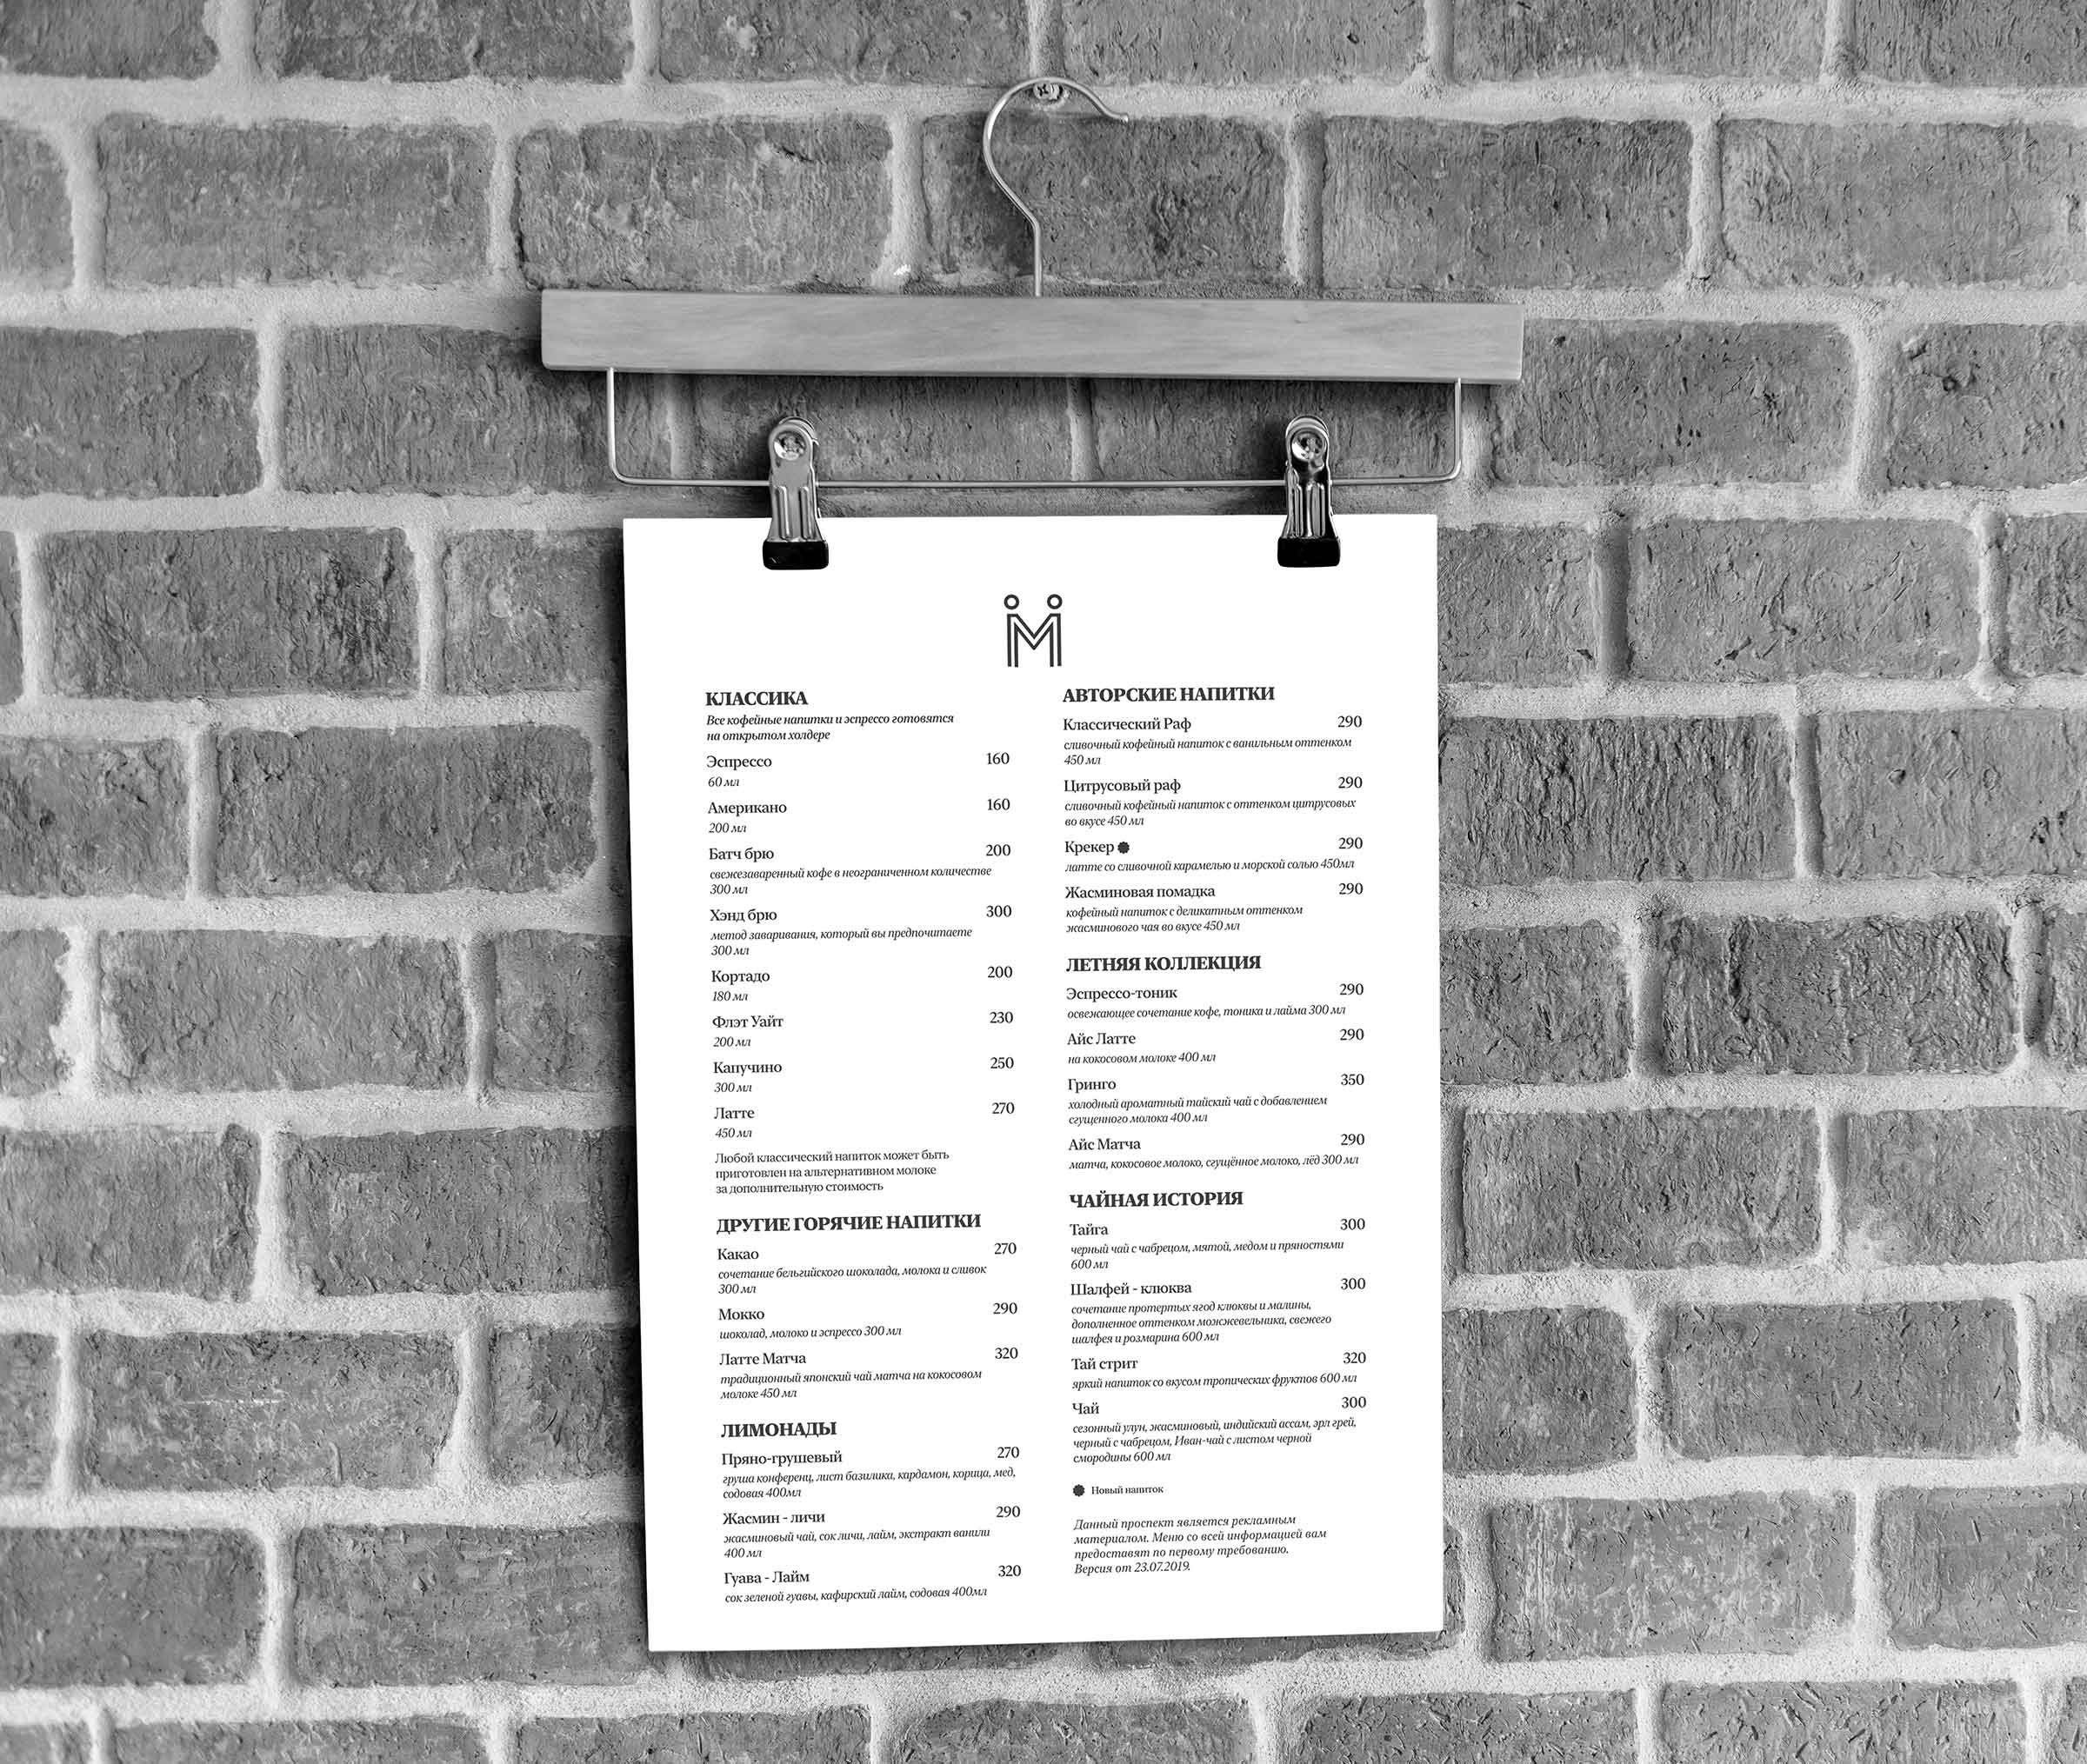 М
КЛАССИКА
Все кофейные напитки и эспрессо готовятся
на открытом холдере
Эспрессо 160
60 мл
Американо 160
200 мл
Батч брю 200
свежезаваренный кофе в неограниченном количестве
300 мл
Хэнд брю 300
метод заваривания, который вы предпочитаете
300 мл
Кортадо 200
180 мл
Флэт Уайт 230
200 мл
Капучино 250
300 мл
Латте 270
450 мл
Любой классический напиток может быть
приготовлен на альтернативном молоке
за дополнительную стоимость
ДРУГИЕ ГОРЯЧИЕ НАПИТКИ
Какао 270
сочетание бельгийского шоколада, молока и сливок
300 мл
Мокко 290
шоколад, молоко и эспрессо 300 мл
Латте Матча 320
традиционный японский чай матча на кокосовом
молоке 450 мл
ЛИМОНАДЫ
Пряно-грушевый 270
груша конференц, лист базилика, кардамон, корица, мед,
содовая 400мл
Жасмин - личи 290
жасминовый чай, сок личи, лайм, экстракт ванили
400 мл
Гуава - Лайм 320
сок зеленой гуавы, кафирский лайм, содовая 400мл
АВТОРСКИЕ НАПИТКИ
Классический Раф 290
сливочный кофейный напиток с ванильным оттенком
450 мл
Цитрусовый раф 290
сливочный кофейный напиток с оттенком цитрусовых
во вкусе 450 мл
Крекер 290
латте со сливочной карамелью и морской солью 450мл
Жасминовая помадка 290
кофейный напиток с деликатным оттенком
жасминового чая во вкусе 450 мл
ЛЕТНЯЯ КОЛЛЕКЦИЯ
Эспрессо-тоник 290
освежающее сочетание кофе, тоника и лайма 300 мл
Айс Латте 290
на кокосовом молоке 400 мл
Гринго 350
холодный ароматный тайский чай с добавлением
сгущенного молока 400 мл
Айс Матча 290
матча, кокосовое молоко, сгущённое молоко, лёд 300 мл
ЧАЙНАЯ ИСТОРИЯ
Тайга 300
черный чай с чабрецом, мятой, медом и пряностями
600 мл
Шалфей - клюква 300
сочетание протертых ягод клюквы и малины,
дополненное оттенком можжевельника, свежего
шалфея и розмарина 600 мл
Тай стрит 320
яркий напиток со вкусом тропических фруктов 600 мл
Чай 300
сезонный улун, жасминовый, индийский ассам, эрл грей,
черный с чабрецом, Иван-чай с листом черной
смородины 600 мл
Новый напиток
Данный проспект является рекламным
материалом. Меню со всей информацией вам
предоставят по первому требованию.
Версия от 23.07.2019.